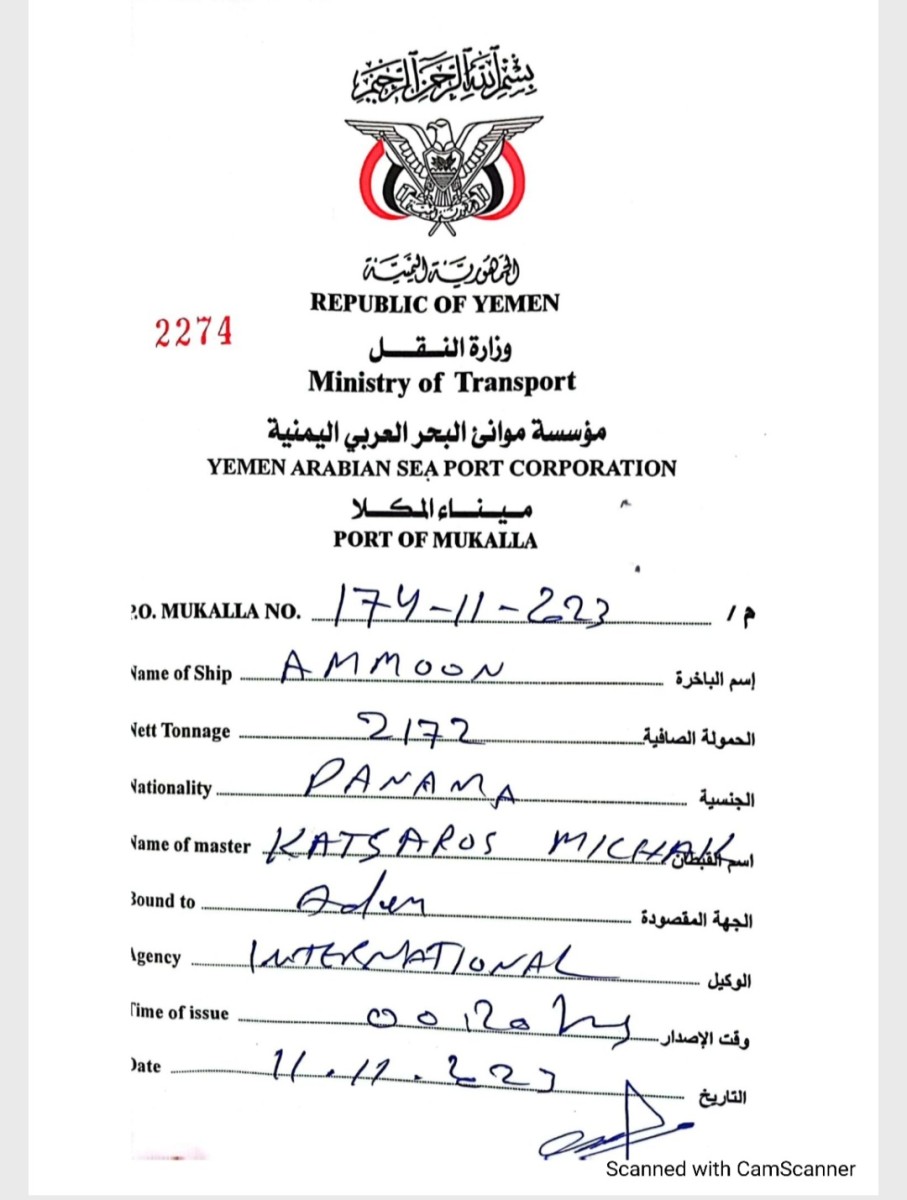 بسم الله الرحمن الرحيم
الجمهورية اليمنية
REPUBLIC OF YEMEN
2274
وزارة النقل
Ministry of Transport
مؤسسة موانئ البحر العربي اليمنية
YEMEN ARABIAN SEA PORT CORPORATION
ميناء المكلا
PORT OF MUKALLA
P.O. MUKALLA NO. 174-11-2023 م/
Name of Ship AMMOON إسم الباخرة
Nett Tonnage 2172 الحمولة الصافية
Nationality PANAMA الجنسية
Name of master KATSAROS اسم القبطان
Bound to Aden الجهة المقصودة
Agency INTERNATIONAL الوكيل
Time of issue وقت الإصدار
Date 11.11.2023 التاريخ
Scanned with CamScanner